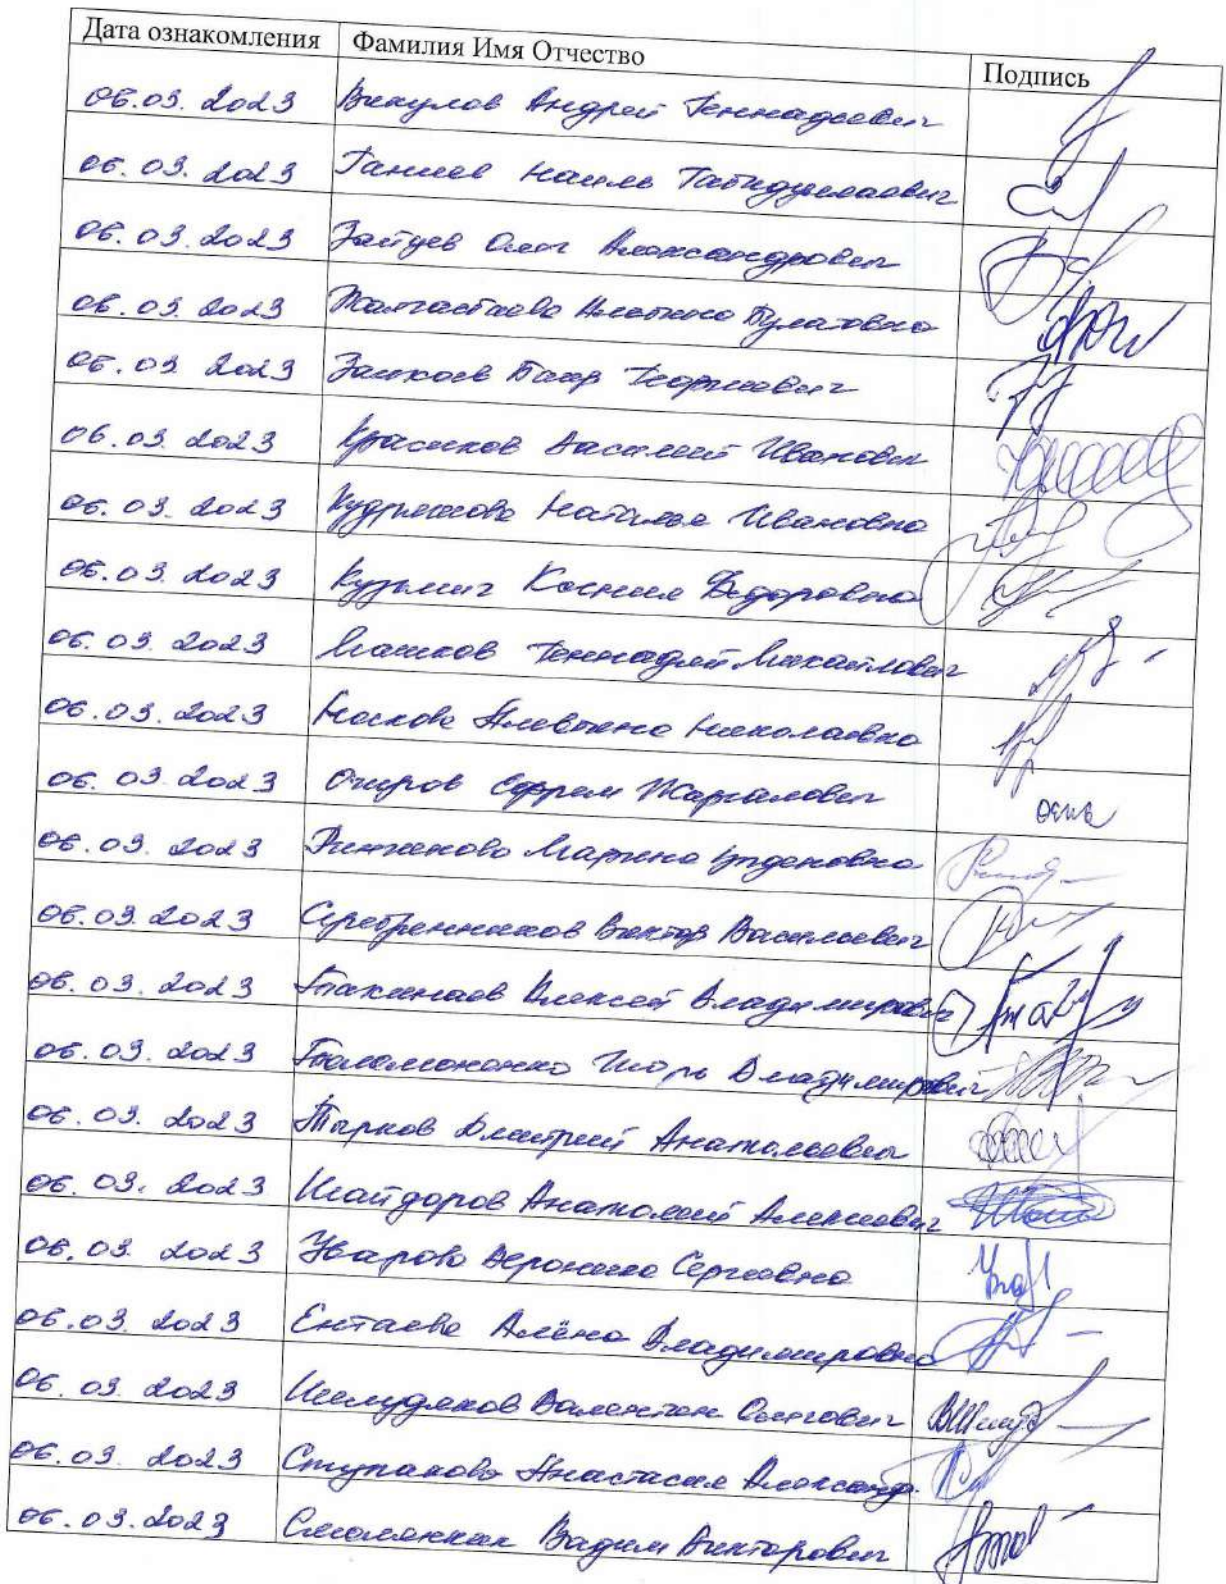 Дата ознакомления Фамилия Имя Отчество Подпись
06.03.2023 Викулов Андрей Геннадьевич
06.03.2023 Ганиев Наиль Габидуллаевич
06.03.2023 Зайцев Олег Александрович
06.03.2023 Булатовна
06.03.2023 Заикоев Баир Георгиевич
06.03.2023 Красиков Василий Иванович
06.03.2023 Кудряшова Наталья Ивановна
06.03.2023 Кузьмич Ксения Федоровна
06.03.2023 Машков Геннадий Михайлович
06.03.2023 Носкова Алевтина Николаевна
06.03.2023 Очиров Ефрем Жаргалович
06.03.2023 Ринчинова Марина Цыденовна
06.03.2023 Серебренников Виктор Васильевич
06.03.2023 Такинаев Алексей Владимирович
06.03.2023 Паламононко Игорь Владимирович
06.03.2023 Тарков Дмитрий Анатольевич
06.03.2023 Шайдоров Анатолий Алексеевич
06.03.2023 Уварова Вероника Сергеевна
06.03.2023 Ентаева Алёна Владимировна
06.03.2023 Шелудяков Валентин Олегович
06.03.2023 Ступакова Анастасия Александр.
06.03.2023 Смолянкин Вадим Викторович